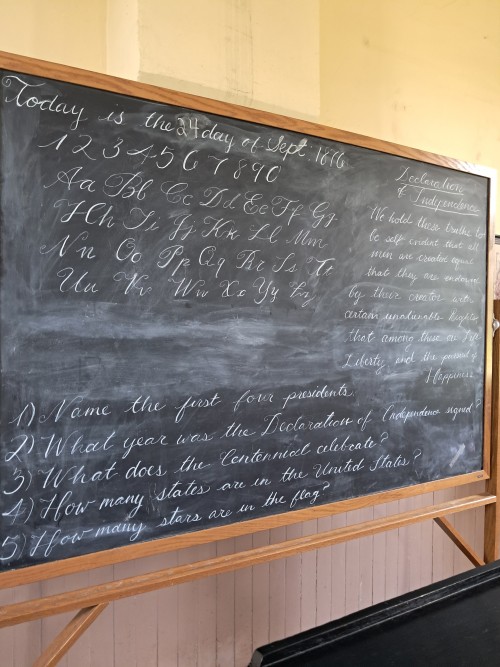 Today is the 24 day of Sept. 1876
1 2 3 4 5 6 7 8 9 0
Aa Bb Cc Dd Ee Ff Gg
Hh Ii Jj Kk Ll Mm
Nn Oo Pp Qq Rr Ss Tt
Uu Vv Ww Xx Yy Zz
Declaration
of Independence
We hold these truths to
be self evident that all
men are created equal
that they are endowed
by their creator with
certain unalienable Rights
that among these are Life
Liberty and the pursuit of
Happiness
1) Name the first four presidents.
2) What year was the Declaration of Independence signed?
3) What does the Centennial celebrate?
4) How many states are in the United States?
5) How many stars are in the flag?